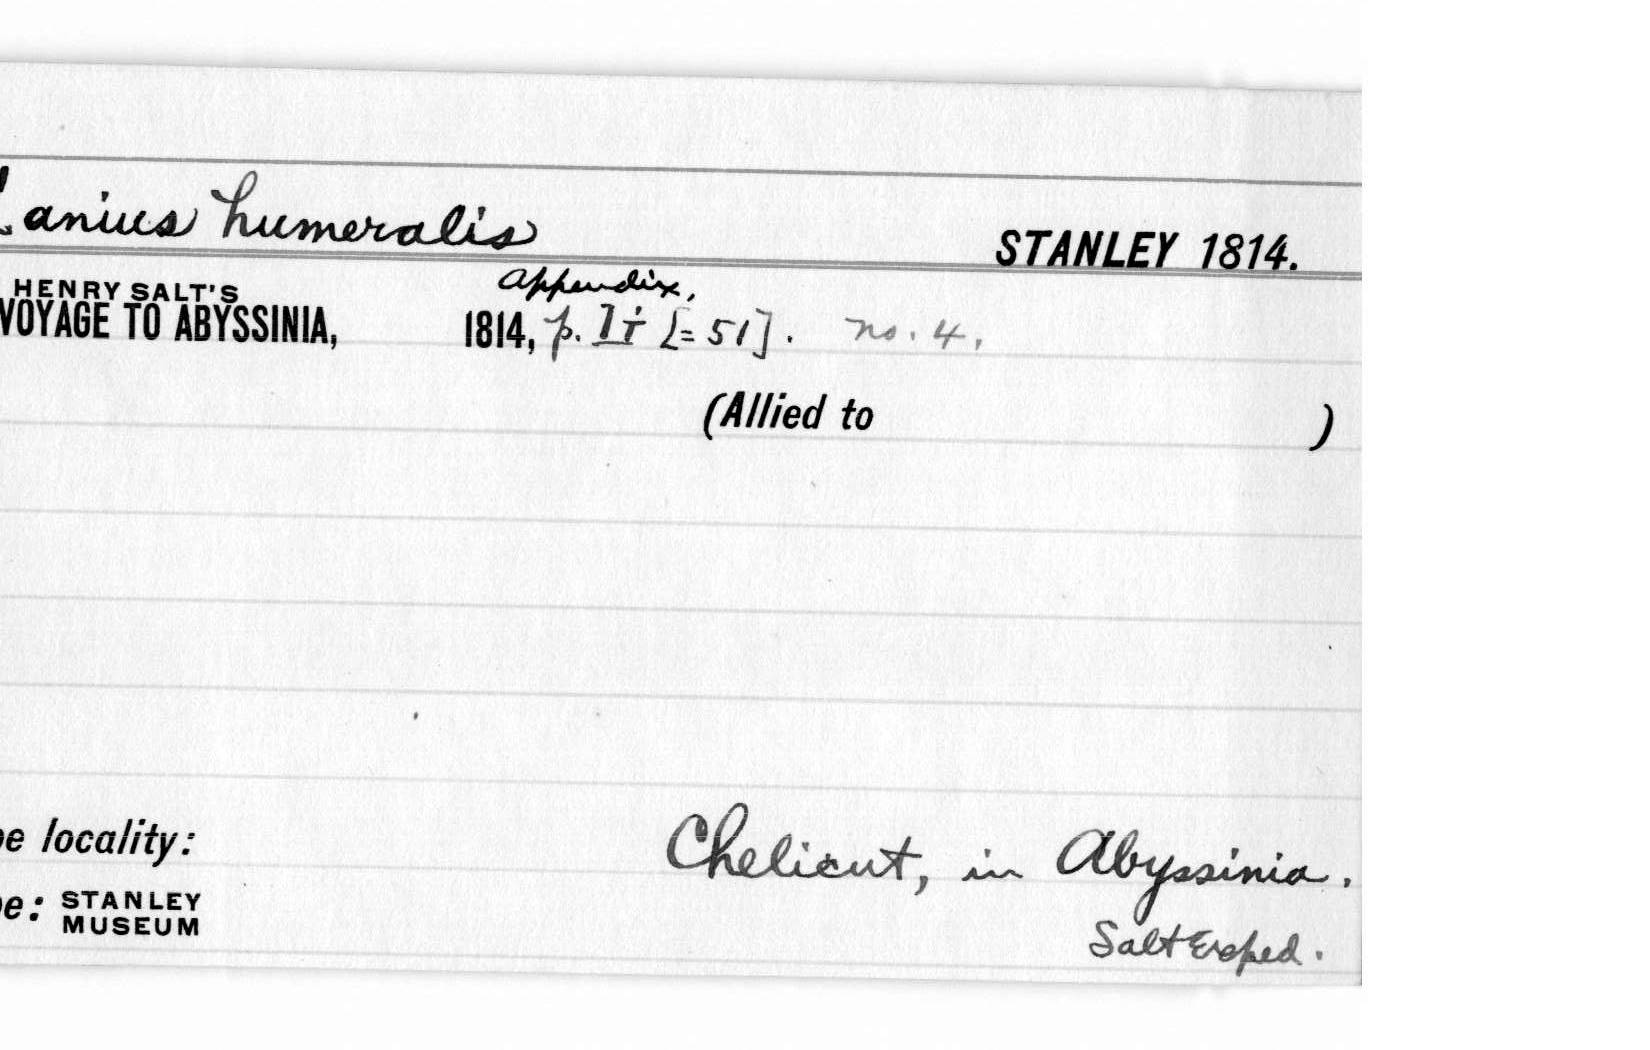 Lanius humeralis STANLEY 1814.
HENRY SALT'S appendix,
VOYAGE TO ABYSSINIA, 1814, p. [= 51]. no. 4.
(Allied to )
pe locality: Chelicut, in Abyssinia.
pe: STANLEY
MUSEUM
Salt Exped.